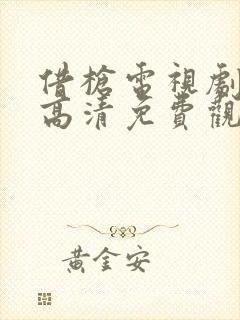 借槍電視劇
高清免費觀
黃金安